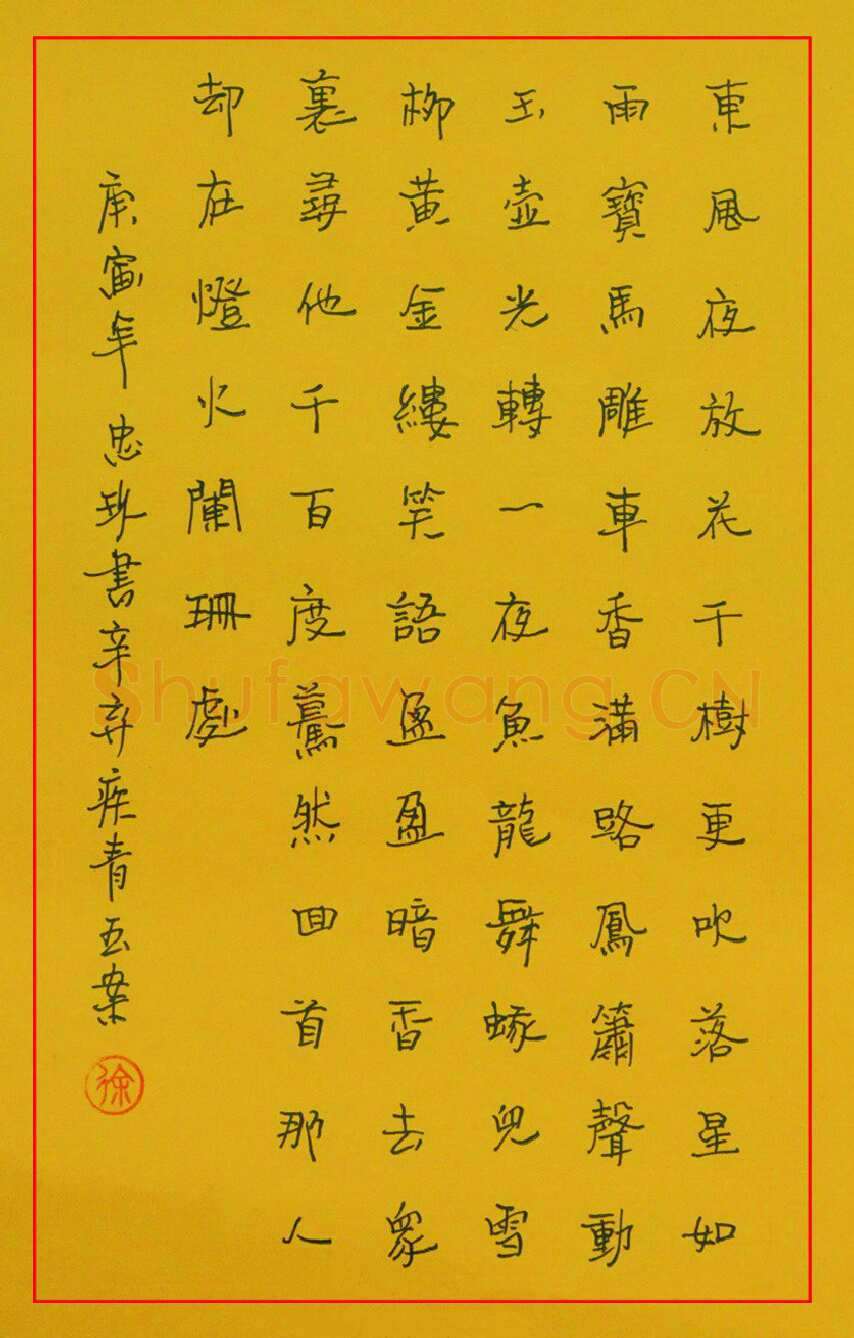 東風夜放花千樹更吹落星如
雨寶馬雕車香滿路鳳簫聲動
玉壺光轉一夜魚龍舞蛾兒雪
柳黃金縷笑語盈盈暗香去眾
裏尋他千百度驀然回首那人
却在燈火闌珊處
庚寅年忠珍書辛弃疾青玉案
徐
Shufawang.CN